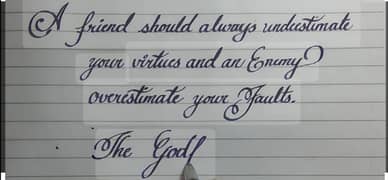 A friend should always underestimate
your virtues and an Enemy
overestimate your Faults.
The Godf